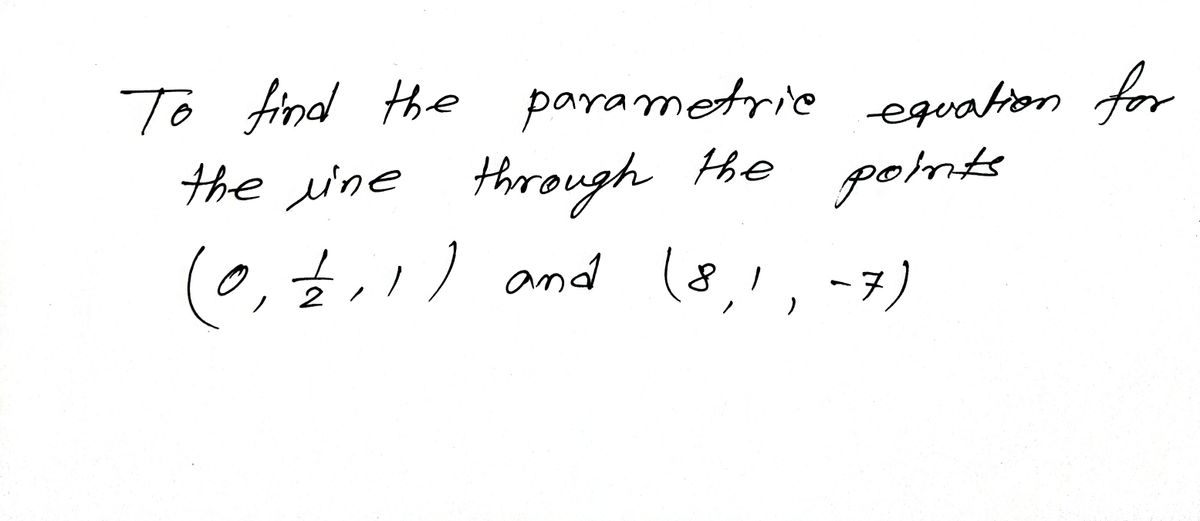 To find the parametric equation for
the line through the points
(0, 1/2, 1) and (8, 1, -7)